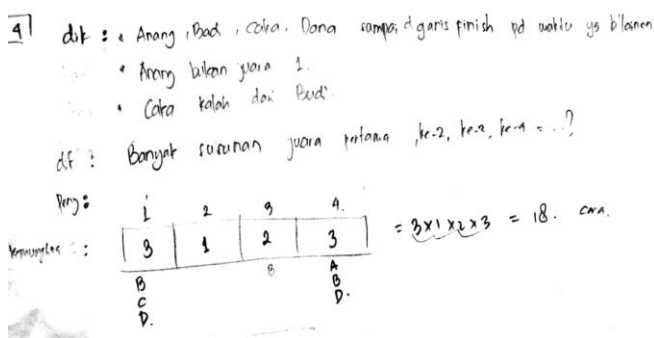 4 dik : • Anang, Badi, Caka, Dana sampai digaris finish pd waktu yg b'lainan
• Anang bukan juara 1.
• Caka kalah dari Budi.
dt : Banyak susunan juara pertama, ke-2, ke-3, ke-4 = ...?
Peny :
1 2 3 4.
Kemungkinan : 3 1 2 3 = 3 x 1 x 2 x 3 = 18. cara.
B B A
C B
D. D.